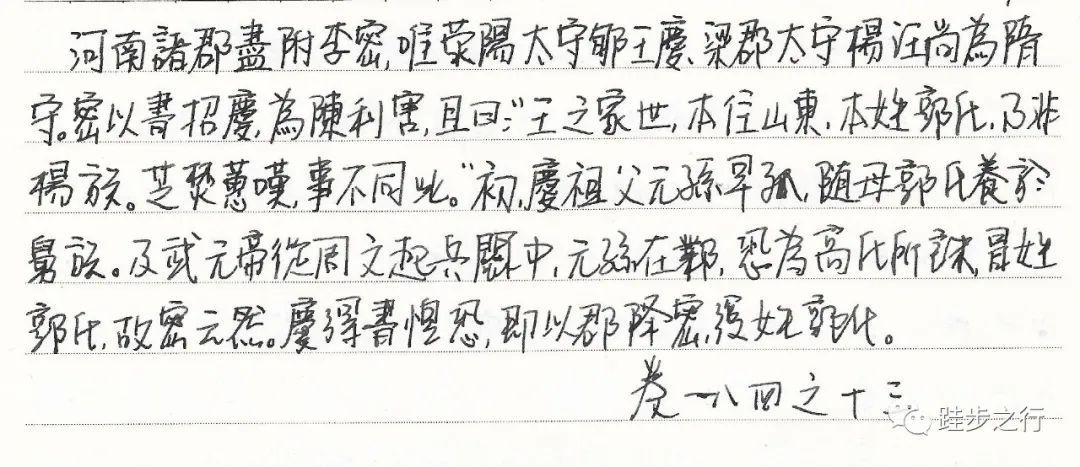 河南諸郡盡附李密,唯荥陽太守郇王慶、梁郡太守楊汪尚為隋
守。密以書招慶,為陳利害,且曰:"王之家世,本住山東,本姓郭氏,乃非
楊族。芝焚蕙嘆,事不同此。"初,慶祖父元孫早孤,随母郭氏養於
舅族。及武元帝從周文起兵關中,元孫在鄴,恐為高氏所誅,冒姓
郭氏,故密云然。慶得書惶恐,即以郡降密,復姓郭氏。
卷一八四之十三
跬步之行